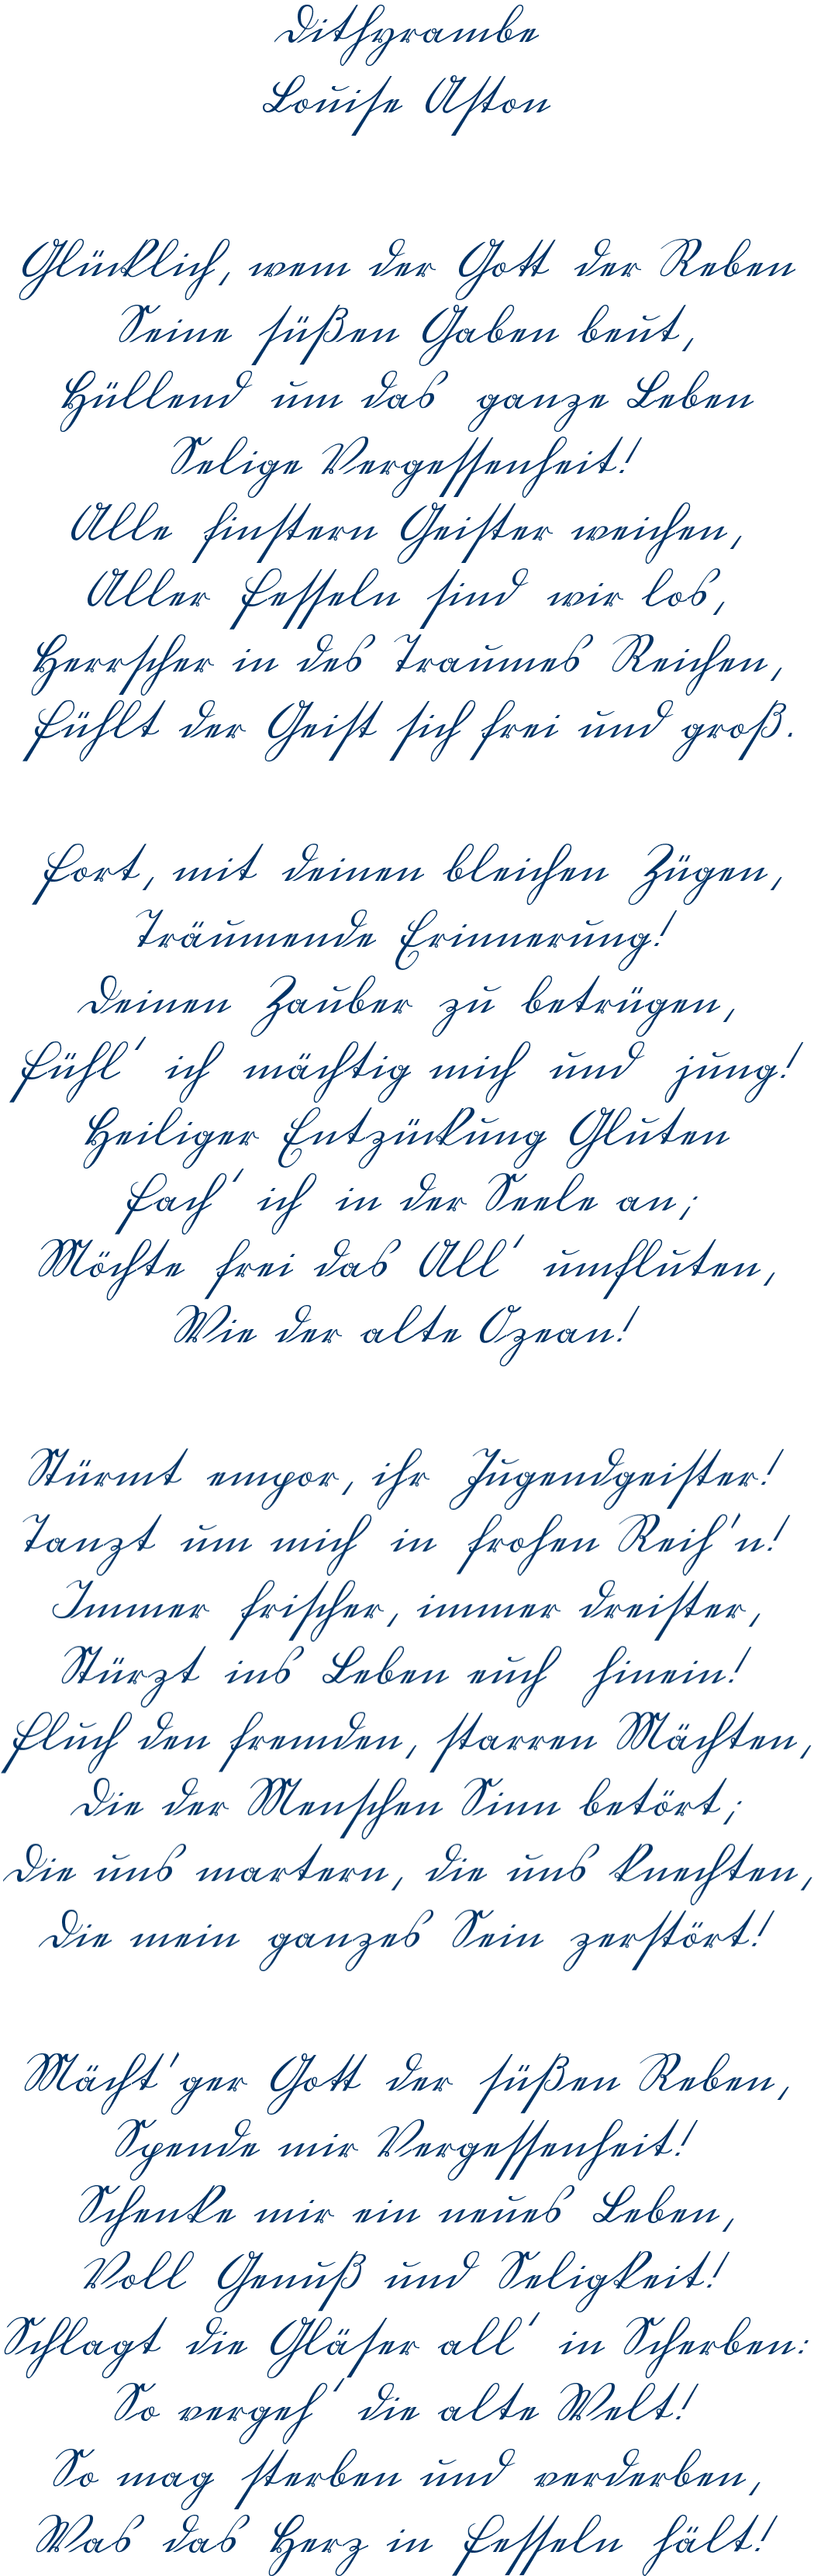 Dithyrambe
Louise Aston
Glücklich, wem der Gott der Reben
Seine süßen Gaben beut,
Hüllend um das ganze Leben
Selige Vergessenheit!
Alle finstern Geister weichen,
Aller Fesseln sind wir los,
Herrscher in des Traumes Reichen,
Fühlt der Geist sich frei und groß.
Fort, mit deinen bleichen Zügen,
Träumende Erinnerung!
Deinen Zauber zu betrügen,
Fühl' ich mächtig mich und jung!
Heiliger Entzückung Gluten
Fach' ich in der Seele an;
Möchte frei das All' umfluten,
Wie der alte Ozean!
Stürmt empor, ihr Jugendgeister!
Tanzt um mich in frohen Reih'n!
Immer frischer, immer dreister,
Stürzt ins Leben euch hinein!
Fluch den fremden, starren Mächten,
Die der Menschen Sinn betört;
Die uns martern, die uns knechten,
Die mein ganzes Sein zerstört!
Mächt'ger Gott der süßen Reben,
Spende mir Vergessenheit!
Schenke mir ein neues Leben,
Voll Genuß und Seligkeit!
Schlagt die Gläser all' in Scherben:
So vergeh' die alte Welt!
So mag sterben und verderben,
Was das Herz in Fesseln hält!